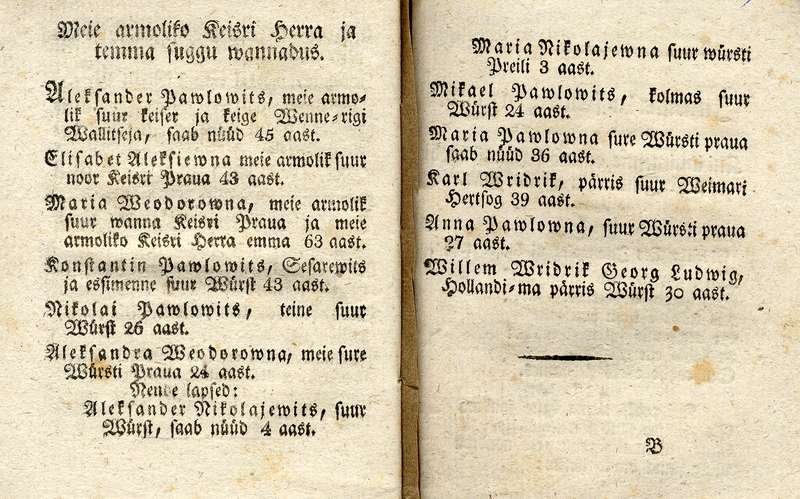 Meie armoliko Keisri Herra ja
temma suggu wannadus.
Aleksander Pawlowits, meie armo-
lik suur keiser ja keige Wenne-rigi
Wallitseja, saab nüüd 45 aast.
Elisabet Aleksiewna meie armolik suur
noor Keisri Praua 43 aast.
Maria Weodorowna, meie armolik
suur wanna Keisri Praua ja meie
armoliko Keisri Herra emma 63 aast.
Konstantin Pawlowits, Sesarewits
ja essimenne suur Würst 43 aast.
Nikolai Pawlowits, teine suur
Würst 26 aast.
Aleksandra Weodorowna, meie sure
Würsti Praua 24 aast.
Nende lapsed:
Aleksander Nikolajewits, suur
Würst, saab nüüd 4 aast.
Maria Nikolajewna suur würsti
Preili 3 aast.
Mikael Pawlowits, kolmas suur
Würst 24 aast.
Maria Pawlowna sure Würsti praua
saab nüüd 36 aast.
Karl Wridrik, pärris suur Weimari
Hertsog 39 aast.
Anna Pawlowna, suur Würsti praua
27 aast.
Willem Wridrik Georg Ludwig,
Hollandi-ma pärris Würst 30 aast.
B